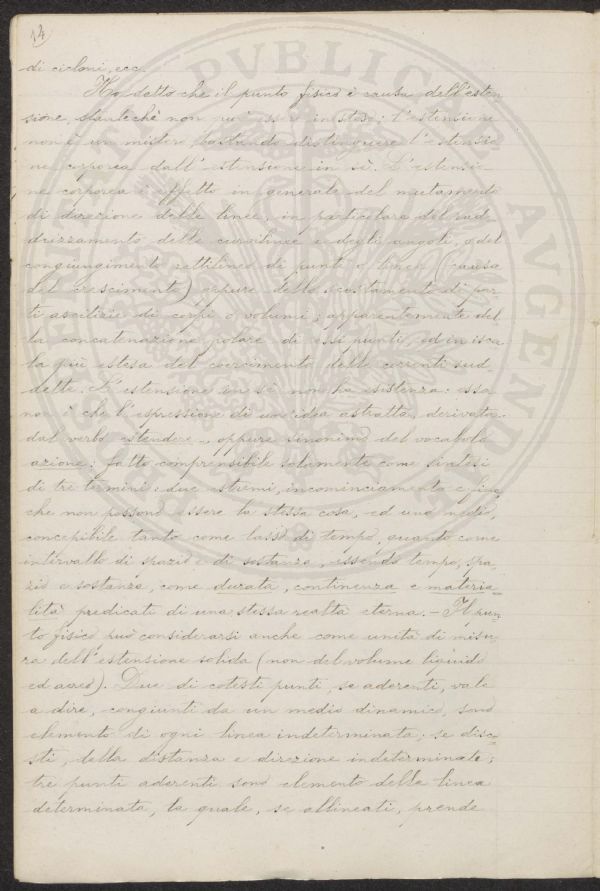 14
di cicloni, ecc.
Ho detto che il punto fisico è causa dell'esten-
sione, stantechè non può essere inesteso; l'estensione
non è un mistero, bastando distinguere l'estensio-
ne corporea dall'estensione in sè. L'estensio-
ne corporea è effetto in generale del mutamento
di direzione delle linee, in particolare del rad-
drizzamento delle curvilinee e degli angoli, o del
congiungimento rettilineo di punti o linee (causa
del crescimento) oppure dello scostamento di par-
ti ascitizie di corpi o volumi; apparentemente del-
la concatenazione polare di essi punti, ed in isca-
la più estesa del coercimento delle correnti sud-
dette. L'estensione in sè non ha esistenza: essa
non è che l'espressione di un'idea astratta, derivata
dal verbo estendere, oppure sinonimo del vocabolo
azione: fatto comprensibile solamente come sintesi
di tre termini: due estremi, incominciamento e fine,
che non possono essere la stessa cosa, ed uno medio,
concepibile tanto come lasso di tempo, quanto come
intervallo di spazio e di sostanza, essendo tempo, spa-
zio e sostanza, come durata, continenza e materia-
lità predicati di una stessa realtà eterna. - Il pun-
to fisico può considerarsi anche come unità di misu-
ra dell'estensione solida (non del volume liquido
ed aereo). Due di cotesti punti, se aderenti, vale
a dire, congiunti da un medio dinamico, sono
elemento di ogni linea indeterminata; se disco-
sti, della distanza e direzione indeterminate;
tre punti aderenti sono elemento della linea
determinata, la quale, se allineati, prende